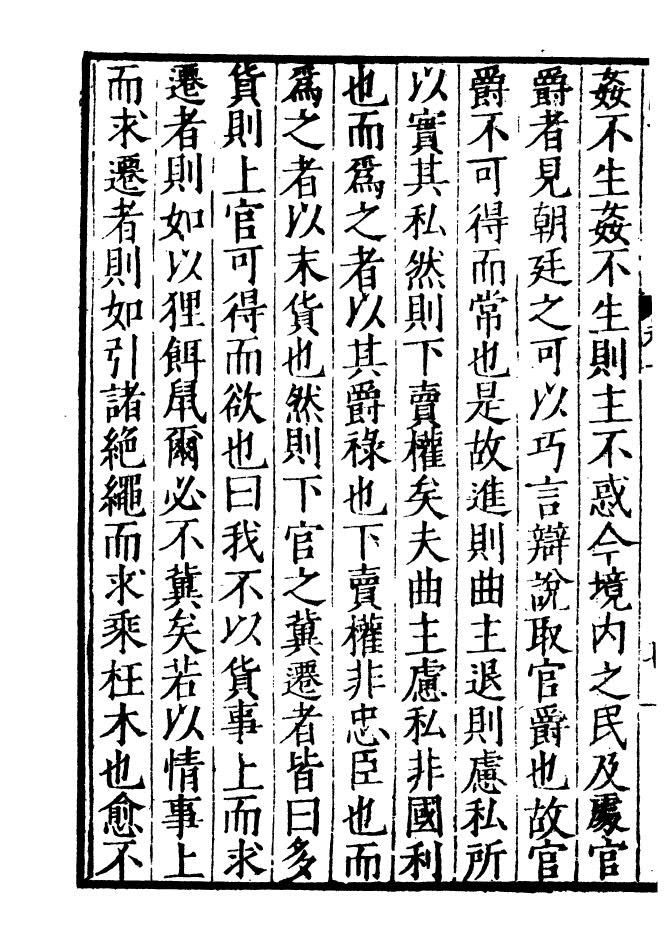 姦不生姦不生則主不惑今境内之民及處官
爵者見朝廷之可以巧言辯說取官爵也故官
爵不可得而常也是故進則曲主退則慮私所
以實其私然則下賣權矣夫曲主慮私非國利
也而爲之者以其爵祿也下賣權非忠臣也而
爲之者以末貨也然則下官之冀遷者皆曰多
貨則上官可得而欲也曰我不以貨事上而求
遷者則如以狸餌鼠爾必不冀矣若以情事上
而求遷者則如引諸絶繩而求乘枉木也愈不